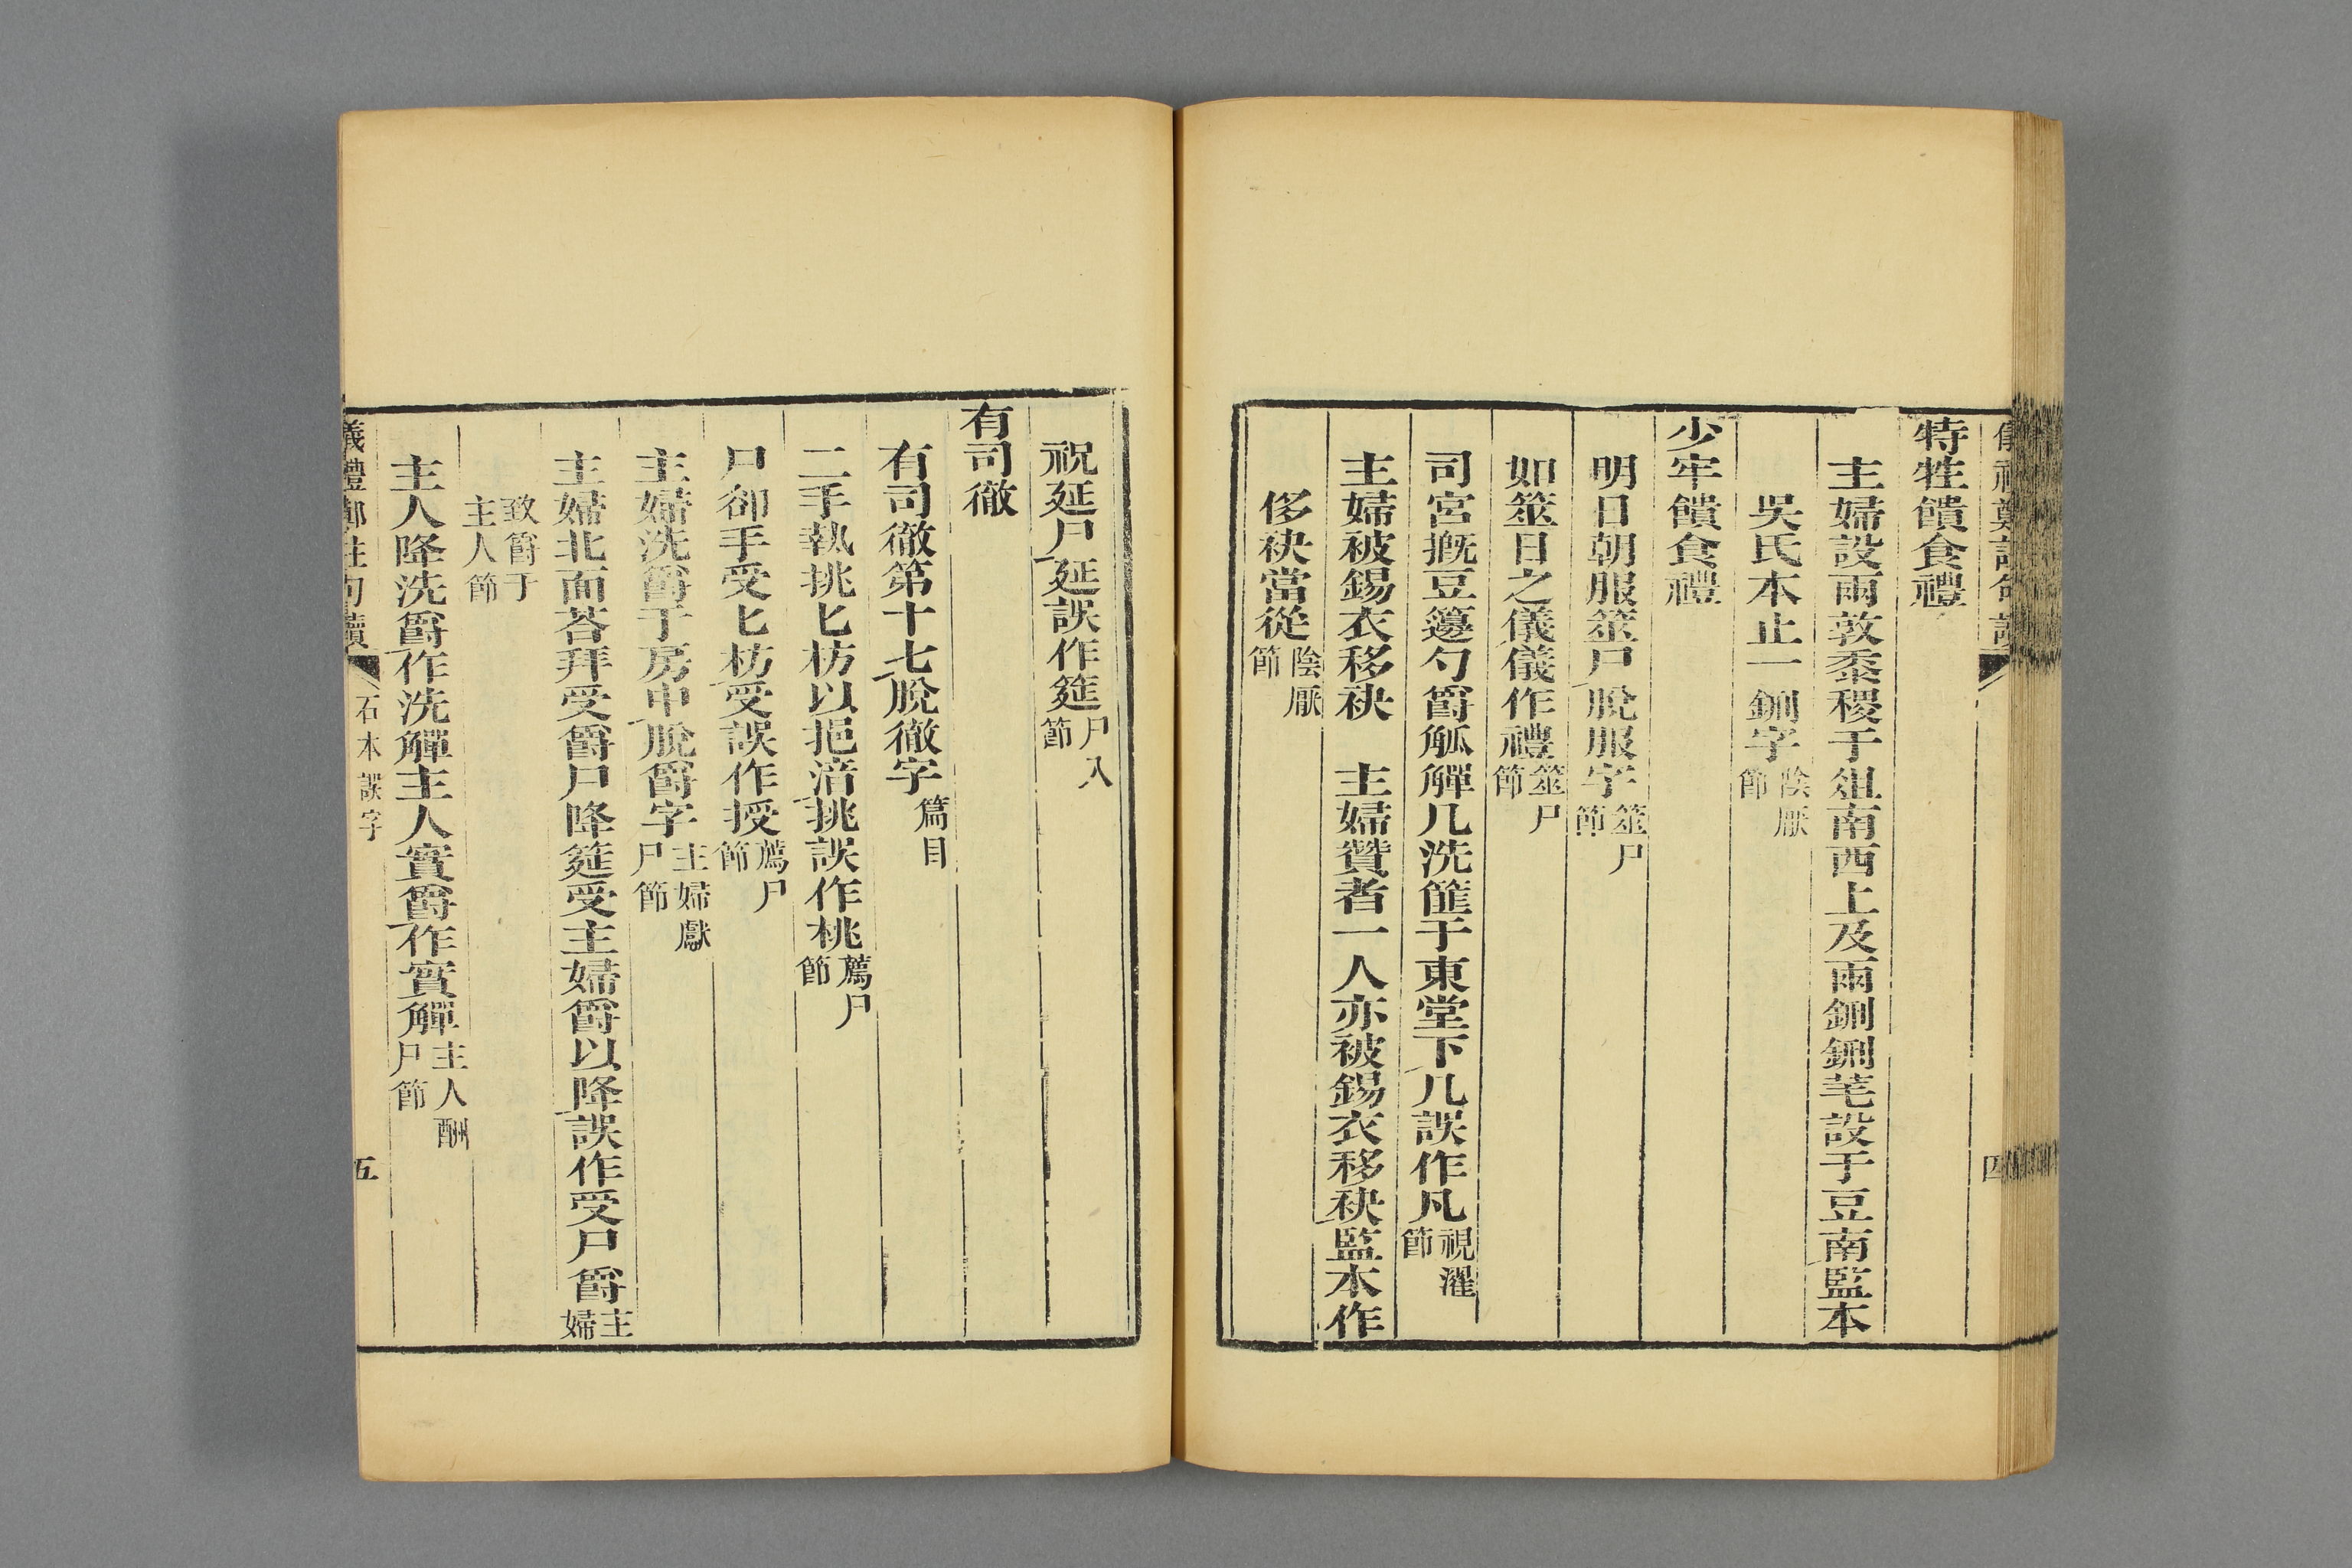 特牲饋食禮
主婦設兩敦黍稷于俎南西上及兩鉶鉶芼設于豆南監本
吳氏本止一鉶字陰厭節
少牢饋食禮
明日朝服筮尸脫服字筮尸節
如筮日之儀儀作禮筮尸節
司宮摡豆籩勺爵觚觶几洗篚于東堂下几誤作凡視濯節
主婦被錫衣移袂　主婦贊者一人亦被錫衣移袂監本作
侈袂當從陰厭節
祝延尸延誤作筵尸入節
有司徹
有司徹第十七脫徹字篇目
二手執挑匕枋以挹湆挑誤作桃薦尸節
尸卻手受匕枋受誤作授薦尸節
主婦洗爵于房中脫爵字主婦獻尸節
主婦北面荅拜受爵尸降筵受主婦爵以降誤作受尸爵主婦
致爵于主人節
主人降洗爵作洗觶主人實爵作實觶主人酬尸節
儀禮鄭註句讀 石本誤字 五